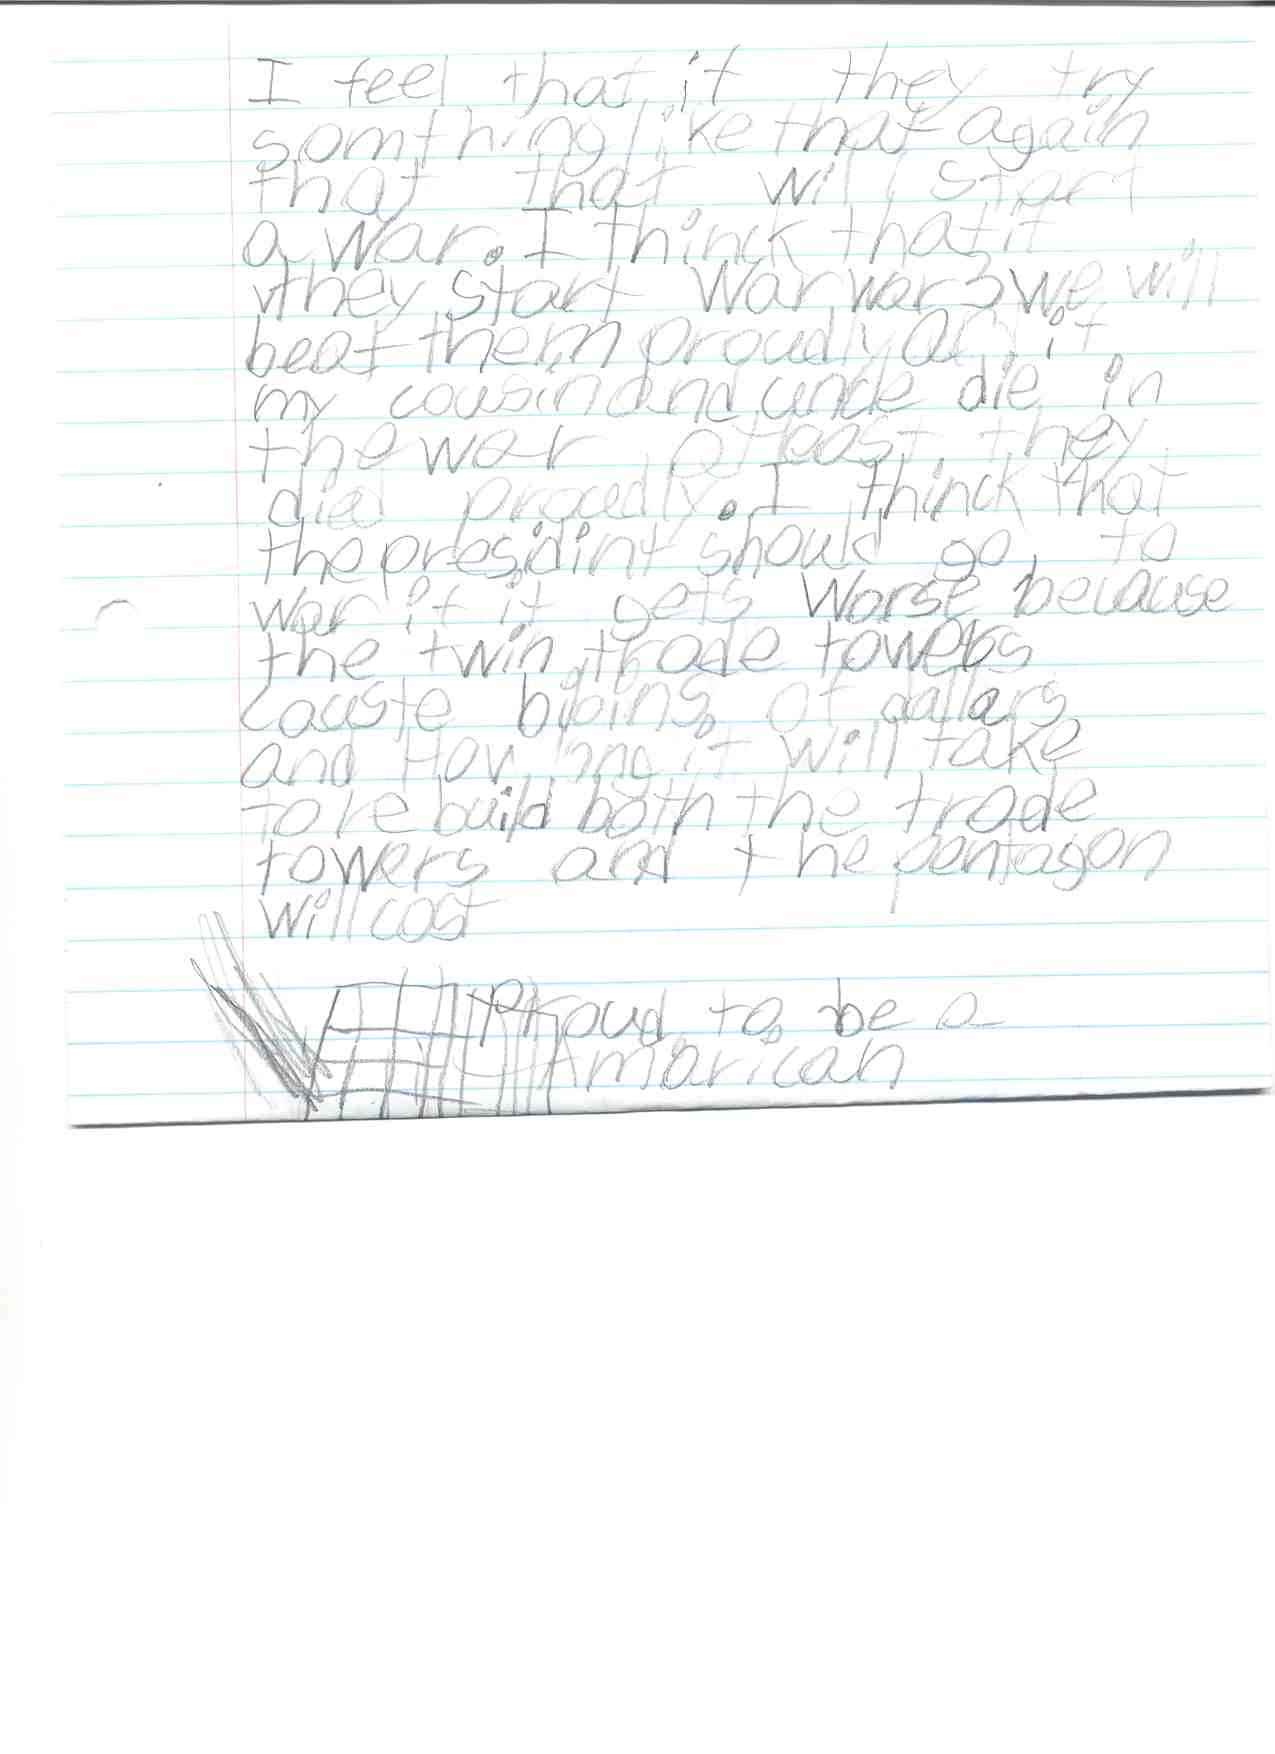 I feel that if they try
somthing like that again
that that will start
a war. I thinck that if
they start War war 3 we will
beat them proudly if
my cousin and uncle die in
the war atleast they
died proudly. I thinck that
the presidint should go to
war if it gets Worse because
the twin trade towers
causte of dallars
and How long it will take
to rebuild both the trade
towers and the pentagon
will cost
Proud to be a
Amarican